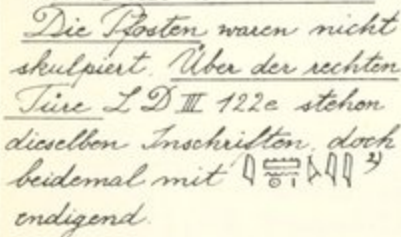 Die Pfosten waren nicht
skulpiert. Über der rechten
Türe L D III 122e stehen
dieselben Inschriften, doch
beidemal mit 2)
endigend.